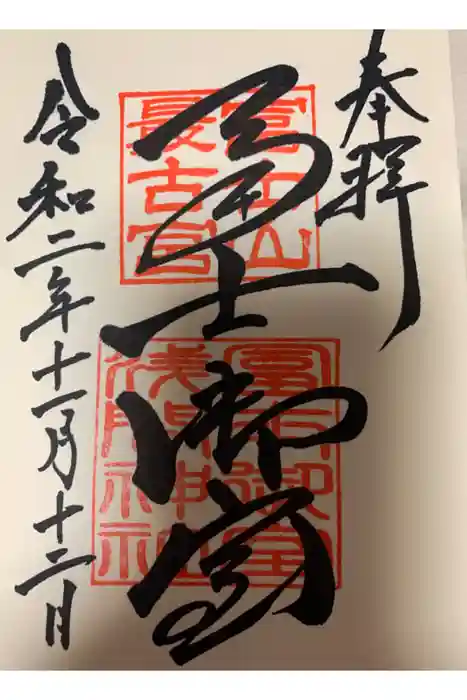 奉拝
冨士御室
富士山
最古宮
冨士御室
浅間神社
令和二年十一月十二日